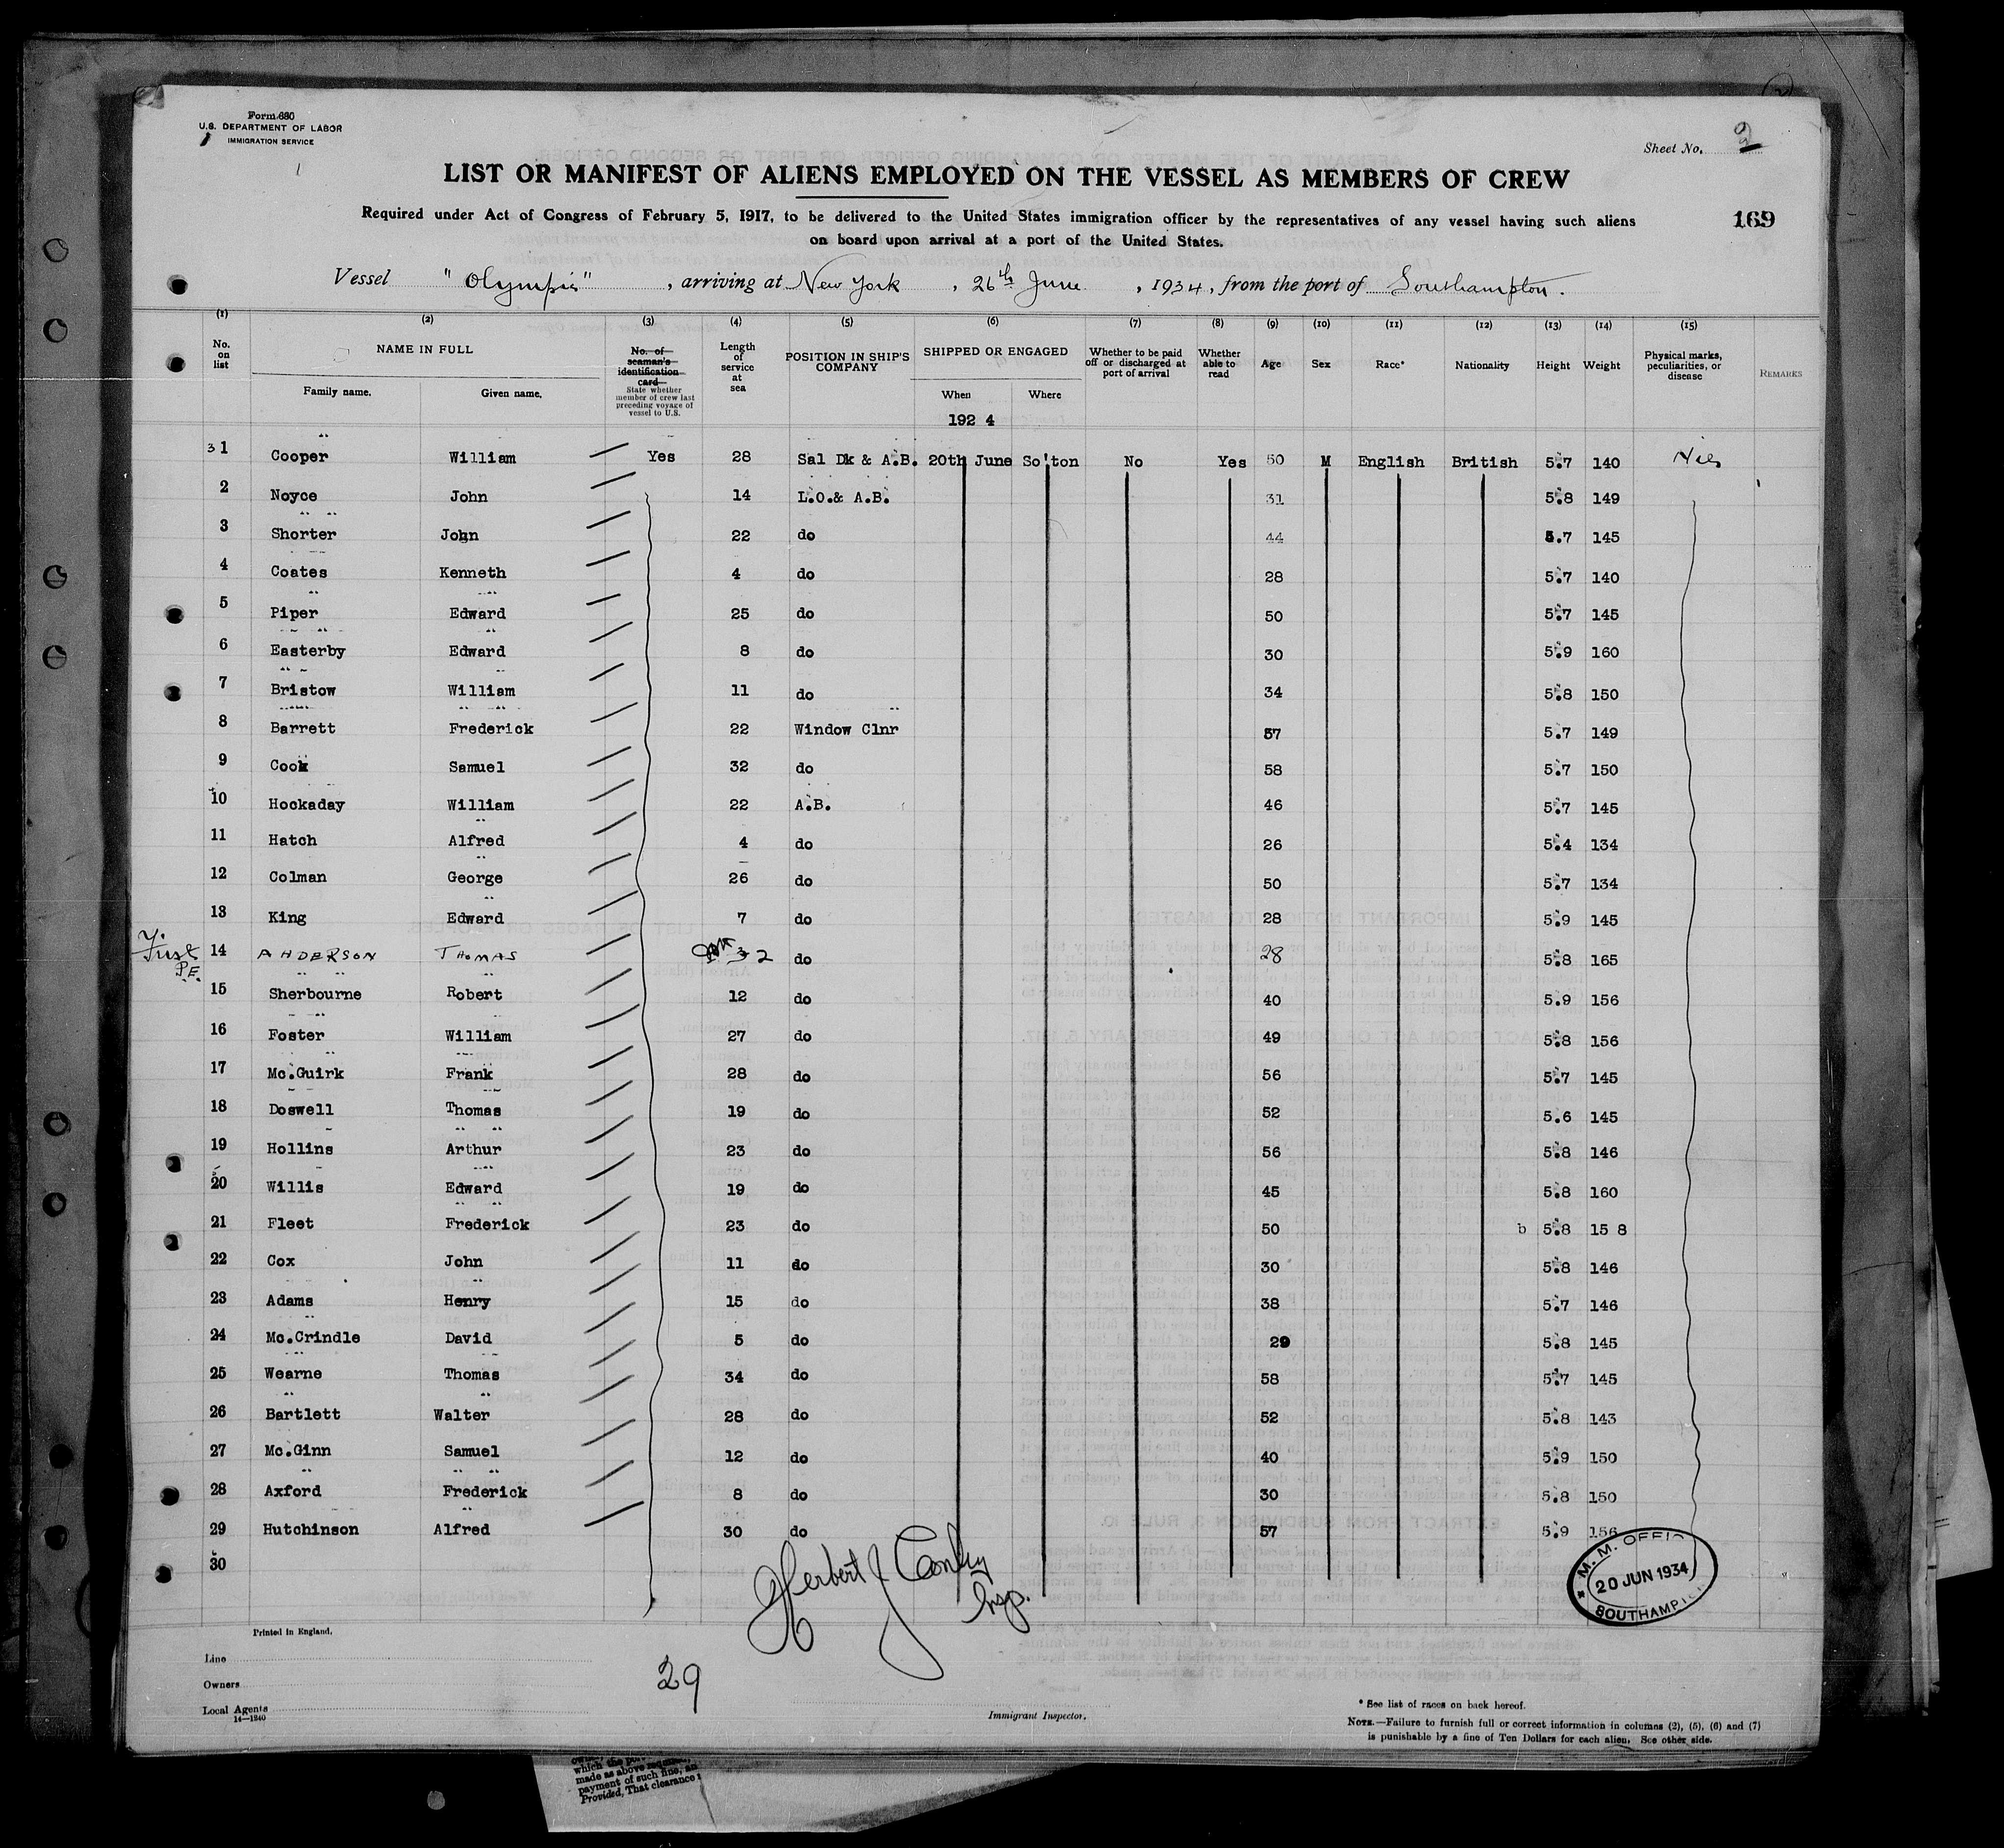 Form 680
U.S. DEPARTMENT OF LABOR
IMMIGRATION SERVICE
Sheet No. 2
LIST OR MANIFEST OF ALIENS EMPLOYED ON THE VESSEL AS MEMBERS OF CREW
Required under Act of Congress of February 5, 1917, to be delivered to the United States immigration officer by the representatives of any vessel having such aliens
on board upon arrival at a port of the United States.
169
Vessel "Olympic", arriving at New York, 26th June, 1934, from the port of Southampton.
(1) (2) (3) (4) (5) (6) (7) (8) (9) (10) (11) (12) (13) (14) (15)
No. on list NAME IN FULL Family name. Given name. No. of seaman's identification card State whether member of crew last preceding voyage of vessel to U.S. Length of service at sea POSITION IN SHIP'S COMPANY SHIPPED OR ENGAGED When Where Whether to be paid off or discharged at port of arrival Whether able to read Age Sex Race* Nationality Height Weight Physical marks, peculiarities, or disease REMARKS
192 4
1 Cooper William Yes 28 Sal Dk & A.B. 20th June So'ton No Yes 50 M English British 5.7 140 Nil
2 Noyce John 14 L.O.& A.B. 31 5.8 149
3 Shorter John 22 do 44 5.7 145
4 Coates Kenneth 4 do 28 5.7 140
5 Piper Edward 25 do 50 5.7 145
6 Easterby Edward 8 do 30 5.9 160
7 Bristow William 11 do 34 5.8 150
8 Barrett Frederick 22 Window Clnr 57 5.7 149
9 Cook Samuel 32 do 58 5.7 150
10 Hockaday William 22 A.B. 46 5.7 145
11 Hatch Alfred 4 do 26 5.4 134
12 Colman George 26 do 50 5.7 134
13 King Edward 7 do 28 5.9 145
First P.E. 14 ANDERSON THOMAS do 28 5.8 165
15 Sherbourne Robert 12 do 40 5.9 156
16 Foster William 27 do 49 5.8 156
17 Mc.Guirk Frank 28 do 56 5.7 145
18 Doswell Thomas 19 do 52 5.6 145
19 Hollins Arthur 23 do 56 5.8 146
20 Willis Edward 19 do 45 5.8 160
21 Fleet Frederick 23 do 50 b 5.8 15 8
22 Cox John 11 do 30 5.8 146
23 Adams Henry 15 do 38 5.7 146
24 Mc.Crindle David 5 do 29 5.8 145
25 Wearne Thomas 34 do 58 5.7 145
26 Bartlett Walter 28 do 52 5.8 143
27 Mc.Ginn Samuel 12 do 40 5.9 150
28 Axford Frederick 8 do 30 5.8 150
29 Hutchinson Alfred 30 do 57 5.9 156
30
Herbert J Conley
Insp.
M. M. OFFIC
20 JUN 1934
SOUTHAMP
Printed in England.
Line
Owners
Local Agents
14—1240
29
Immigrant Inspector.
* See list of races on back hereof.
NOTE.—Failure to furnish full or correct information in columns (2), (5), (6) and (7)
is punishable by a fine of Ten Dollars for each alien. See other side.
which the
made as above
payment of such fine, an
Provided, That clearance